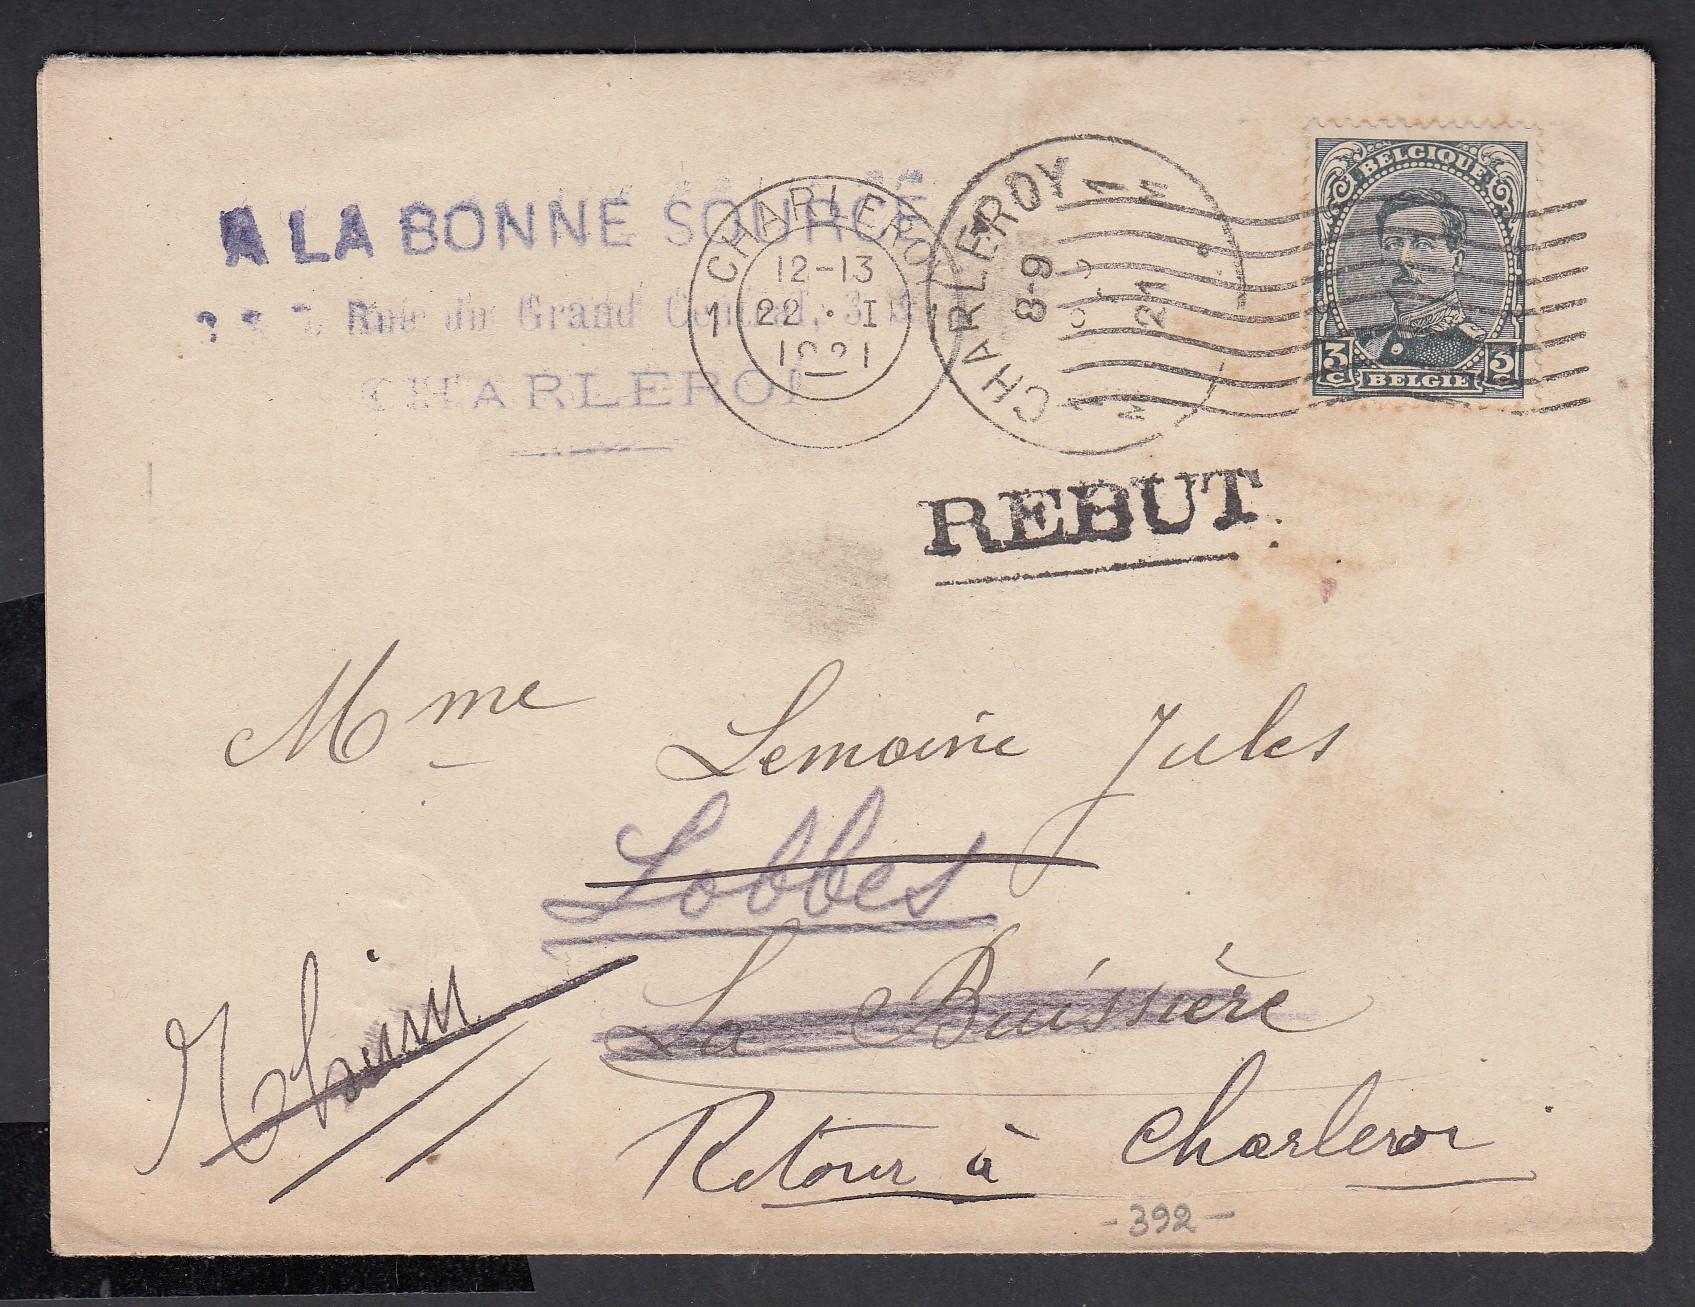 A LA BONNE SOURCE
Rue du Grand Central, 3
CHARLEROI
1 CHARLEROI 1
12-13
22 · I
1921
CHARLEROY
8-9
21
1 M
1 M
BELGIQUE
3 C 3 C
BELGIE
REBUT
Mme Lemoine Jules
Lobbes
La Buissière
Thuin
Retour à Charleroi
- 392 -